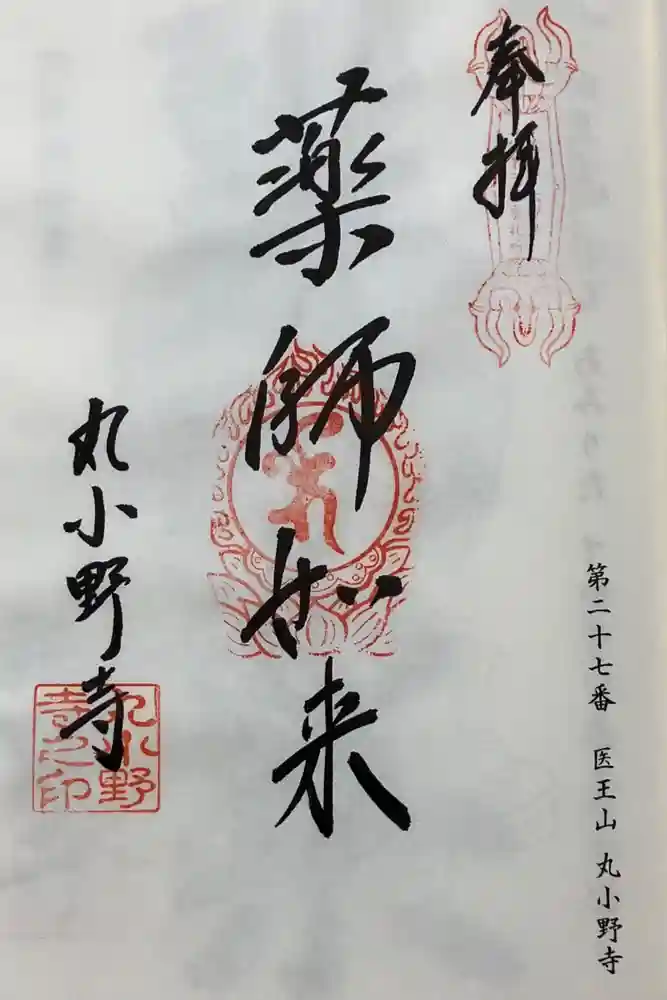 奉拝
第二十七番 医王山 丸小野寺
薬師如来
丸小野寺
丸小野
寺之印